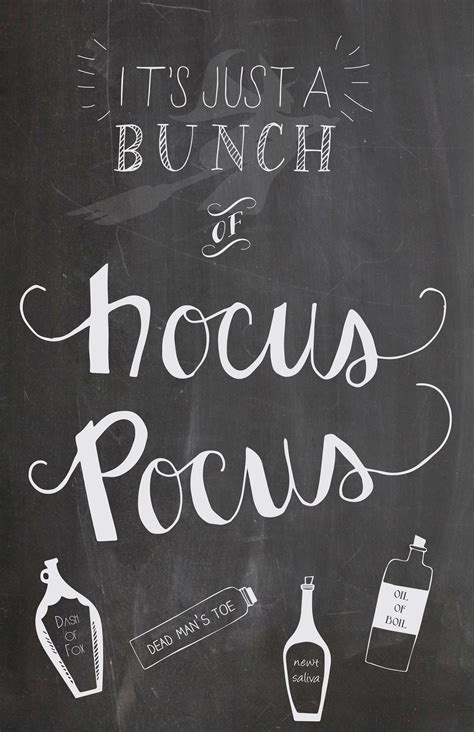 IT'S JUST A
BUNCH
OF
hocus
Pocus
DASH
OF
FOX
DEAD MAN'S TOE
newt
saliva
OIL
OF
BOIL